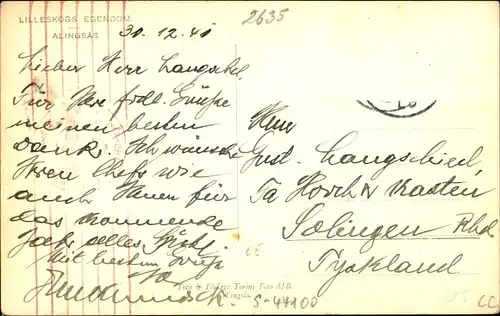 LILLESKOGS EGENDOM
ALINGSÅS
30.12.40
2635
Lieber Herr Langschd.
Für Ihre frdl. Grüße
meinen besten
Dank. Ich wünsche
Ihren Chefs wie
auch Ihnen für
das kommende
Jahr alles Gute.
Mit bestem Gruß
Herrn
Gust. Langschied,
Fa Horch & Kasten
Solingen Rhld
Tyskland
Foto & Förlag: Torins Foto A/B.
Alingsås.
S-44100
CC